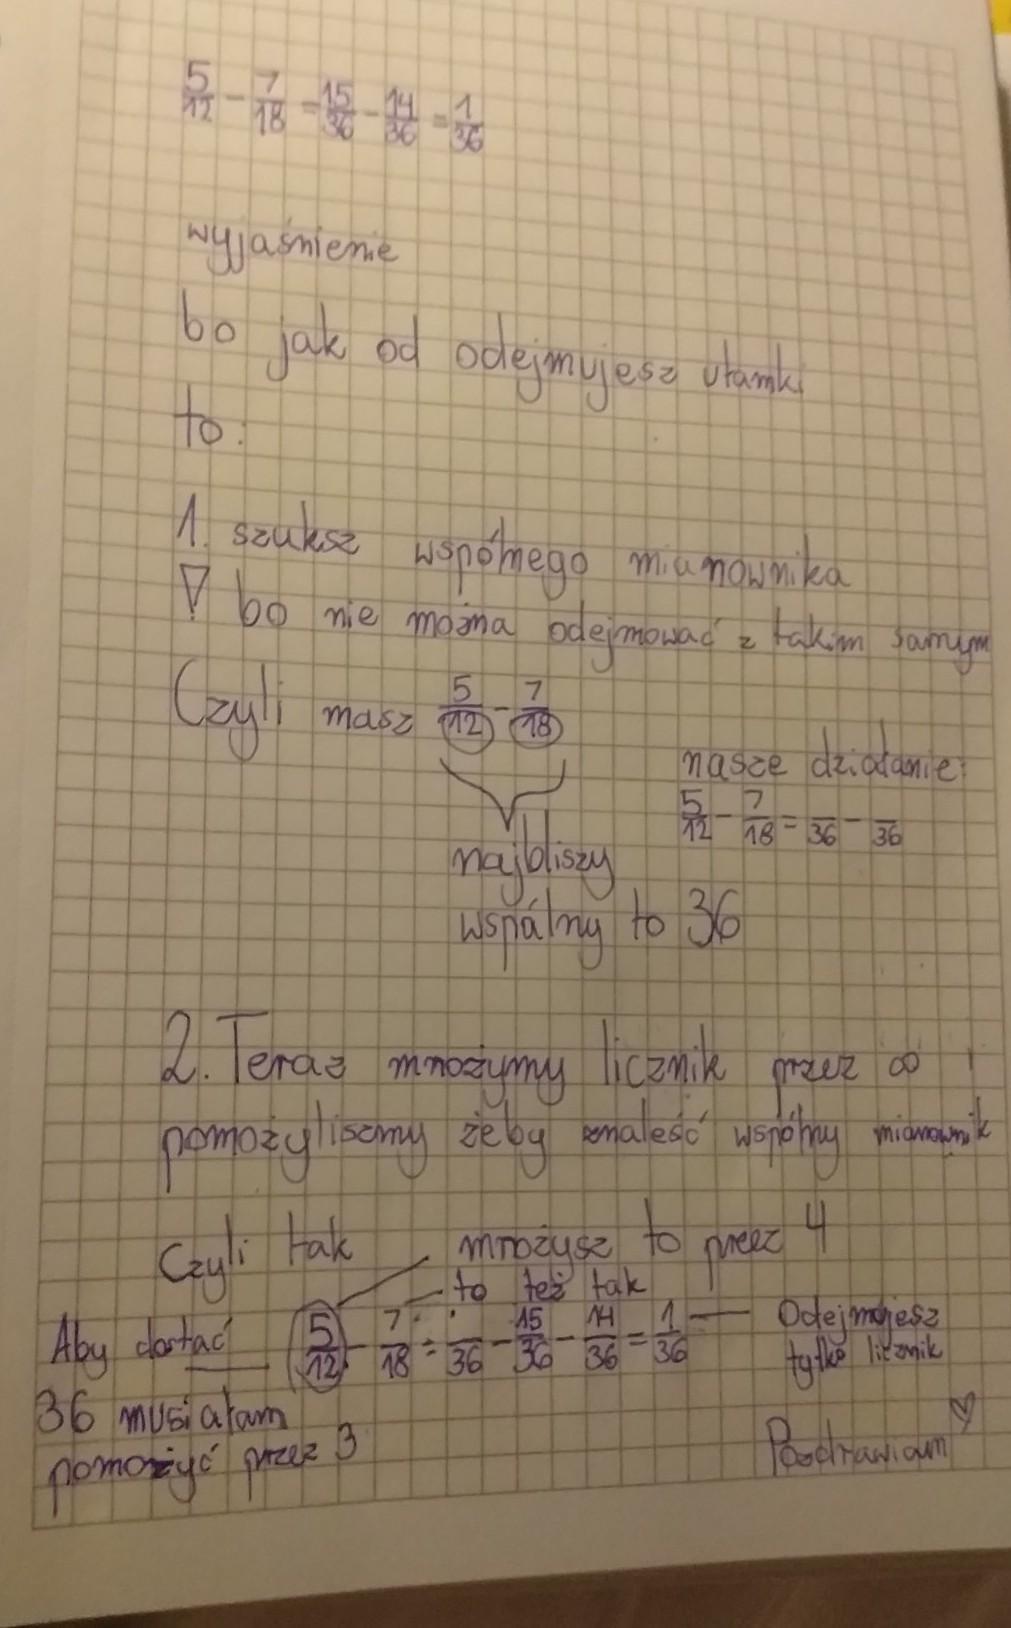 5/12 - 7/18 = 15/36 - 14/36 = 1/36
wyjaśnienie
bo jak od odejmujesz ułamki
to:
1. szuksz wspólnego mianownika
bo nie można odejmować z takim samym
Czyli masz 5/12 - 7/18
nasze działanie:
5/12 - 7/18 = /36 - /36
najbliszy
wspálny to 36
2. Teraz mnożymy licznik przez co
pomożyliszmy żeby znaleść wspólny mianownik
Czyli tak mnożysz to przez 4
to też tak
Aby dostać 5/12 - 7/18 = /36 - 15/36 - 14/36 = 1/36 Odejmujesz
tylko licznik
36 musiałam
pomożyć przez 3
Pozdrawiam ♡